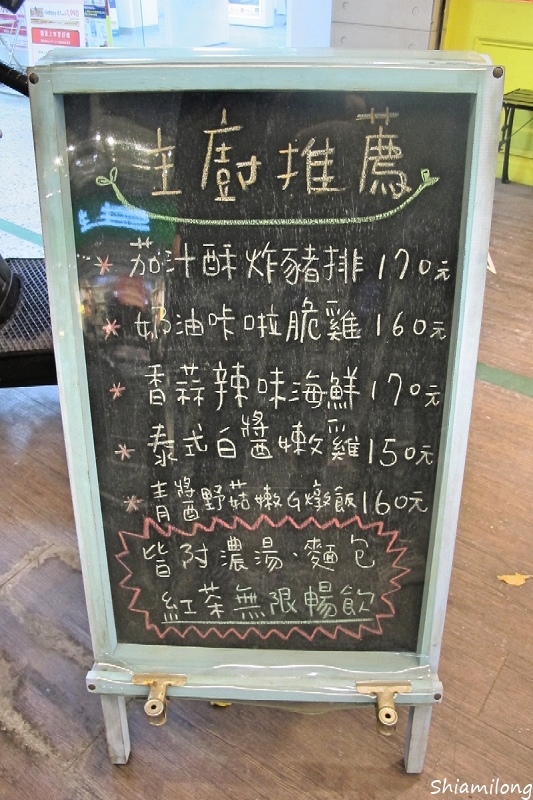 主廚推薦
* 茄汁酥炸豬排 170元
* 奶油咔啦脆雞 160元
* 香蒜辣味海鮮 170元
* 泰式白醬嫩雞 150元
* 青醬野菇嫩G燉飯 160元
皆附濃湯、麵包
紅茶無限暢飲
Shiamilong